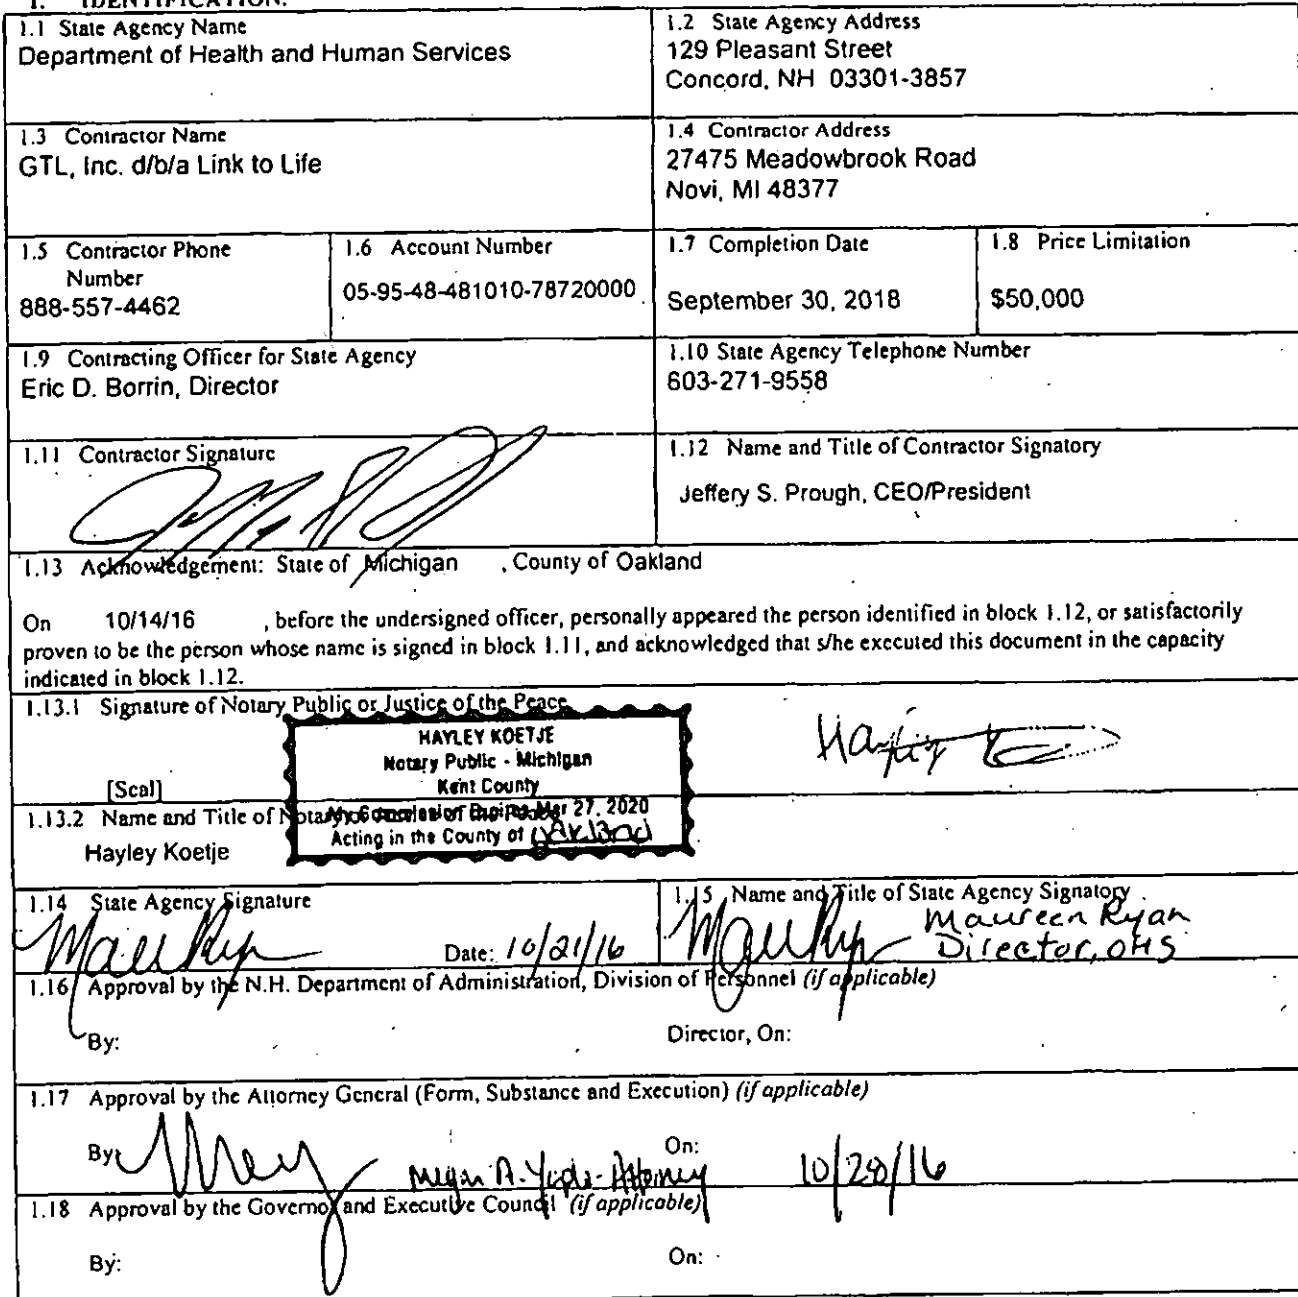 1. IDENTIFICATION.
1.1 State Agency Name
Department of Health and Human Services
1.2 State Agency Address
129 Pleasant Street
Concord, NH 03301-3857
1.3 Contractor Name
GTL, Inc. d/b/a Link to Life
1.4 Contractor Address
27475 Meadowbrook Road
Novi, MI 48377
1.5 Contractor Phone
Number
888-557-4462
1.6 Account Number
05-95-48-481010-78720000
1.7 Completion Date
September 30, 2018
1.8 Price Limitation
$50,000
1.9 Contracting Officer for State Agency
Eric D. Borrin, Director
1.10 State Agency Telephone Number
603-271-9558
1.11 Contractor Signature
1.12 Name and Title of Contractor Signatory
Jeffery S. Prough, CEO/President
1.13 Acknowledgement: State of Michigan , County of Oakland
On 10/14/16 , before the undersigned officer, personally appeared the person identified in block 1.12, or satisfactorily
proven to be the person whose name is signed in block 1.11, and acknowledged that s/he executed this document in the capacity
indicated in block 1.12.
1.13.1 Signature of Notary Public or Justice of the Peace
HAYLEY KOETJE
Notary Public - Michigan
Kent County
My Commission Expires Mar 27, 2020
Acting in the County of Oakland
[Seal]
1.13.2 Name and Title of Notary
Hayley Koetje
1.14 State Agency Signature
Date: 10/21/16
1.15 Name and Title of State Agency Signatory
Maureen Ryan
Director, OHS
1.16 Approval by the N.H. Department of Administration, Division of Personnel (if applicable)
By:
Director, On:
1.17 Approval by the Attorney General (Form, Substance and Execution) (if applicable)
By:
Megan A. - Attorney
On: 10/28/16
1.18 Approval by the Governor and Executive Council (if applicable)
By:
On: